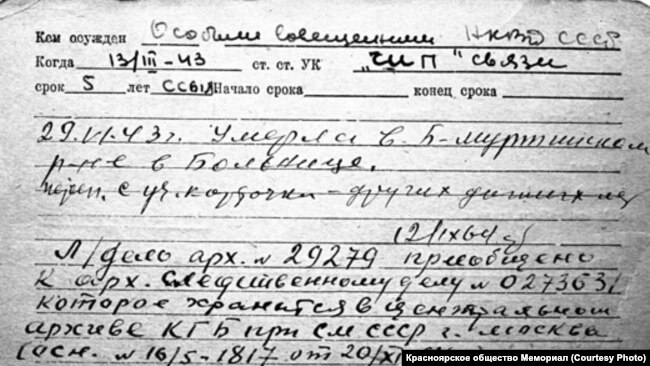 Кем осужден Особым совещанием НКВД СССР
Когда 13/III-43 ст. ст. УК „ЧШП" связи
срок 5 лет ссыл Начало срока конец срока
29.VI.43 г. Умерла в Б-Муртинском
р-не в больнице.
перен. с уч. карточки - других данных нет
12/IX64
Л/дело арх. № 29279 приобщено
к арх. следственному делу №
которое хранится в центральном
архиве КГБ при СМ СССР г. Москва
(осн. № 16/5-1817 от 20/XI
Красноярское общество Мемориал (Courtesy Photo)